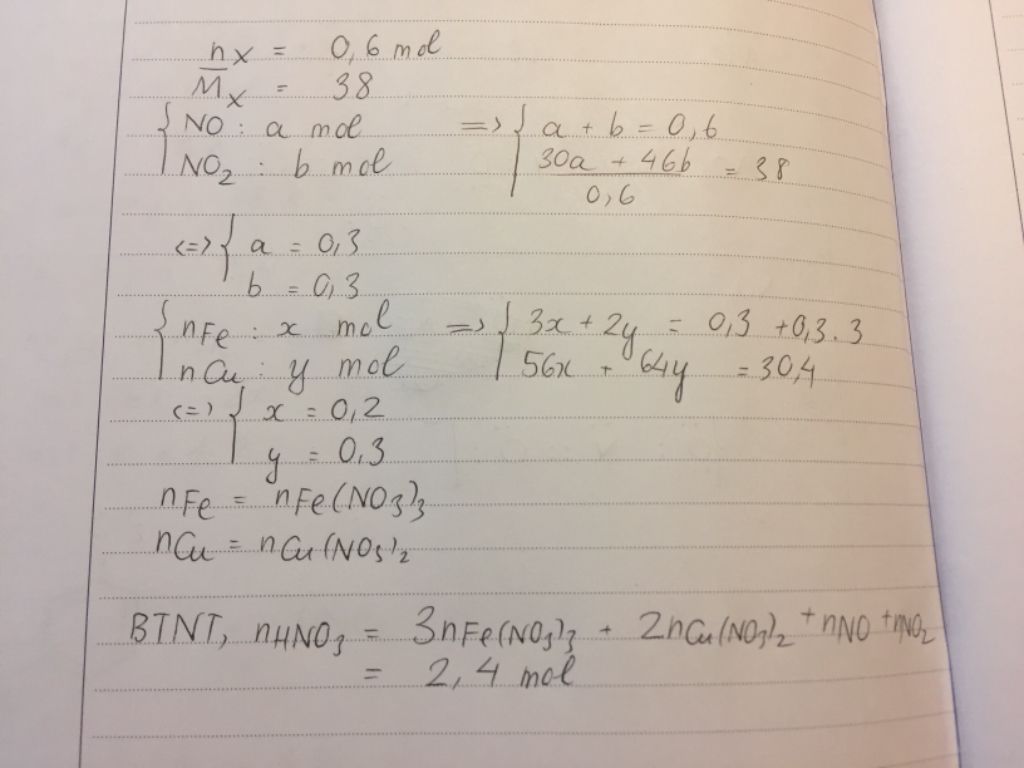 nX = 0,6 mol
M̅X = 38
{ NO : a mol => { a + b = 0,6
NO2 : b mol (30a + 46b)/0,6 = 38
<=> { a = 0,3
b = 0,3
{ nFe : x mol => { 3x + 2y = 0,3 + 0,3.3
nCu : y mol 56x + 64y = 30,4
<=> { x = 0,2
y = 0,3
nFe = nFe(NO3)3
nCu = nCu(NO3)2
BTNT, nHNO3 = 3nFe(NO3)3 + 2nCu(NO3)2 + nNO + nNO2
= 2,4 mol